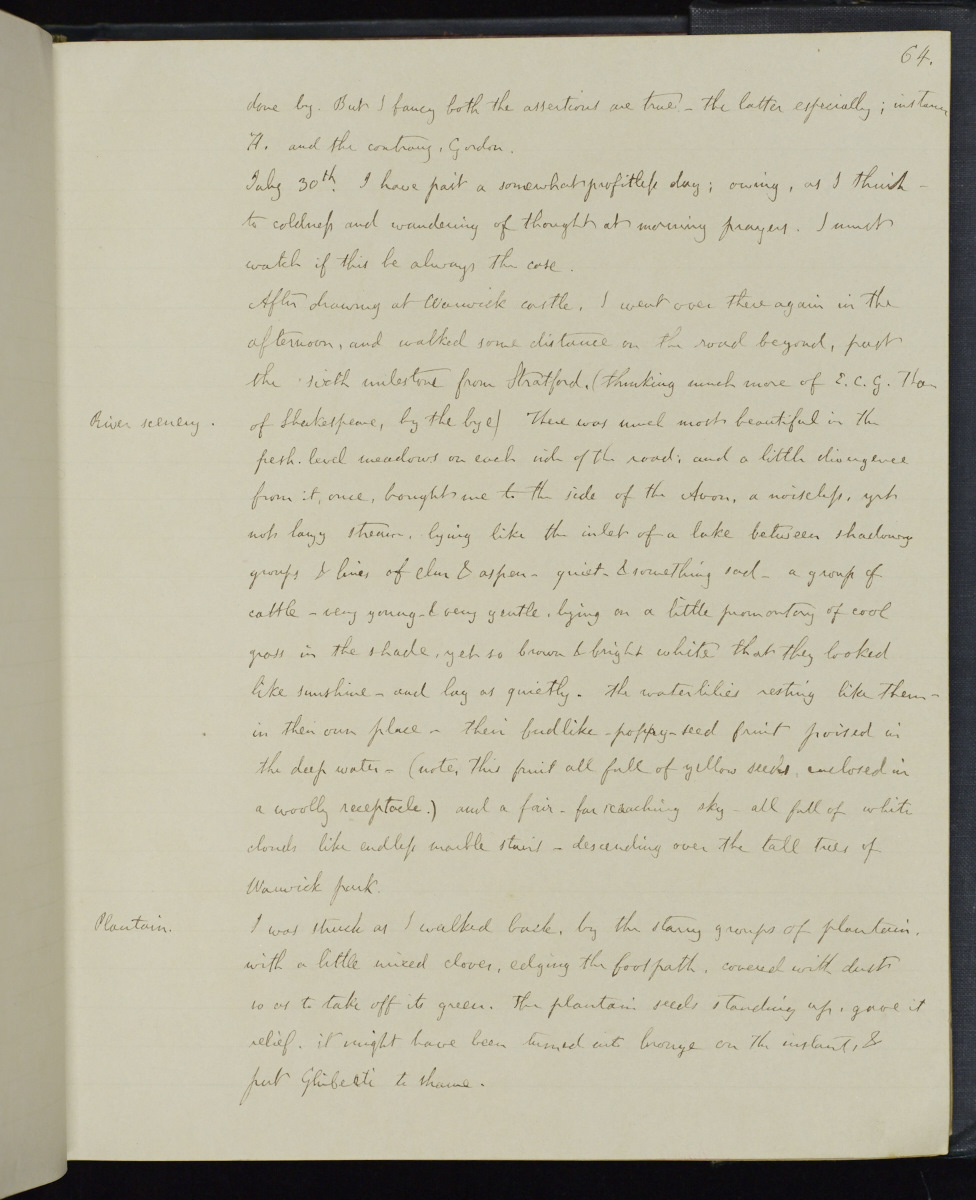 64.
done by. But I fancy both the assertions are true - the latter especially; instance
H. and the contrary, Gordon.
July 30th. I have past a somewhat profitless day; owing, as I think -
to coldness and wandering of thought at morning prayers. I must
watch if this be always the case.
After drawing at Warwick castle, I went over there again in the
afternoon, and walked some distance on the road beyond, past
the sixth milestone from Stratford, (thinking much more of E. C. G. than
River scenery. of Shakespeare, by the bye) There was much most beautiful in the
fresh level meadows on each side of the road; and a little divergence
from it, once, brought me to the side of the Avon, a noiseless, yet
not lazy stream, lying like the inlet of a lake between shadowy
groups & lines of elm & aspen - quiet & something sad - a group of
cattle - very young & very gentle, lying on a little promontory of cool
grass in the shade, yet so brown & bright white that they looked
like sunshine - and lay as quietly. the waterlilies resting like them -
in their own place - their budlike - poppy-seed fruit poised in
the deep water - (note, this fruit all full of yellow seeds, enclosed in
a woolly receptacle.) and a fair - far reaching sky - all full of white
clouds like endless marble stairs - descending over the tall trees of
Warwick park.
Plantain. I was struck as I walked back, by the starry groups of plantain,
with a little mixed clover, edging the footpath, covered with dust
so as to take off its green. The plantain seeds standing up, gave it
relief. it might have been turned into bronze on the instant, &
put Ghiberti to shame.